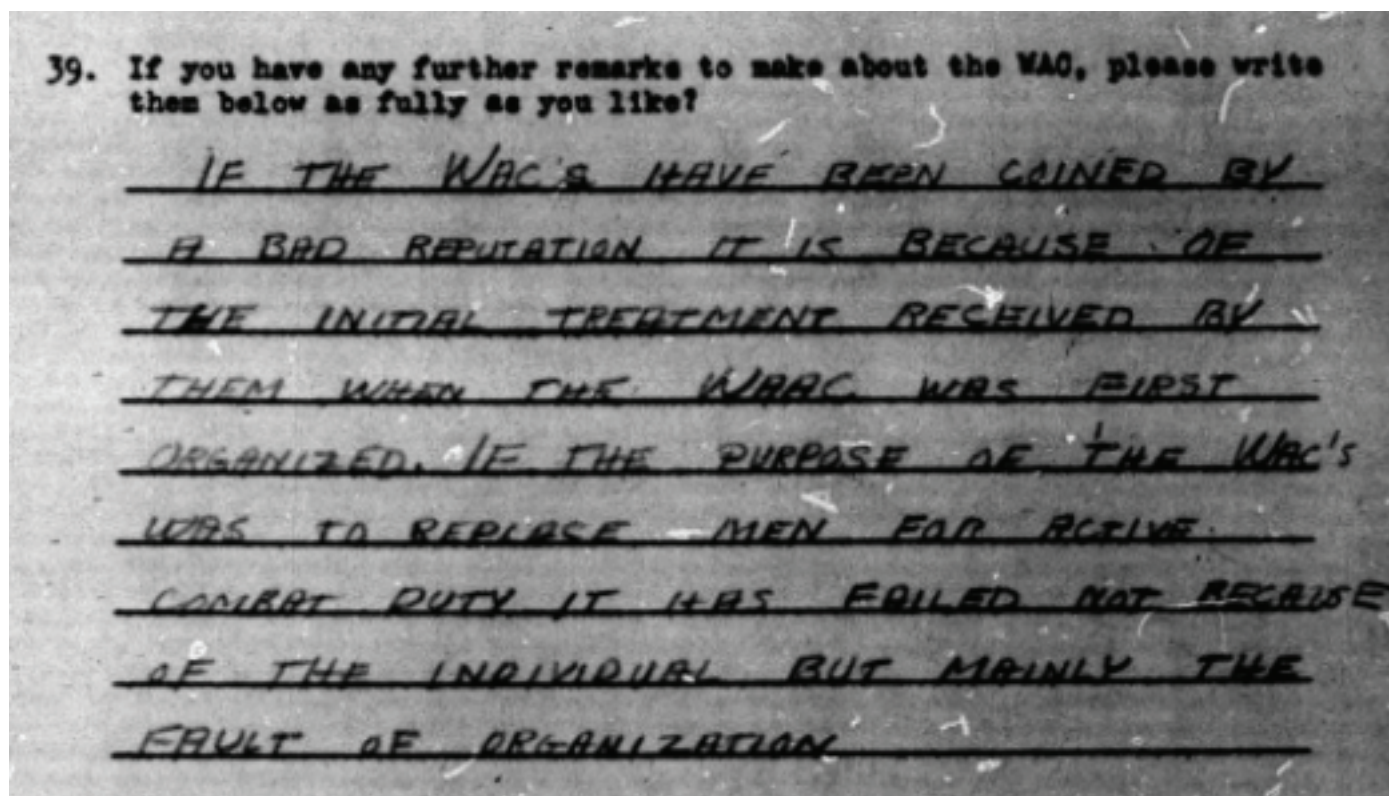 39. If you have any further remarks to make about the WAC, please write
them below as fully as you like?
IF THE WAC'S HAVE BEEN COINED BY
A BAD REPUTATION IT IS BECAUSE OF
THE INITIAL TREATMENT RECEIVED BY
THEM WHEN THE WAAC WAS FIRST
ORGANIZED. IF THE PURPOSE OF THE WAC'S
WAS TO REPLACE MEN FOR ACTIVE
COMBAT DUTY IT HAS FAILED NOT BECAUSE
OF THE INDIVIDUAL BUT MAINLY THE
FAULT OF ORGANIZATION